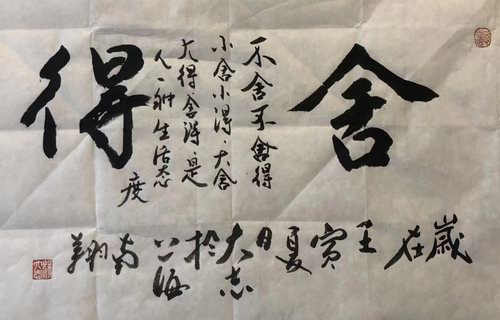 舍
不舍不會得
小舍小得大舍
大得舍得是
人一种生活态
度
得
歲在壬寅夏日大志於上海南翔